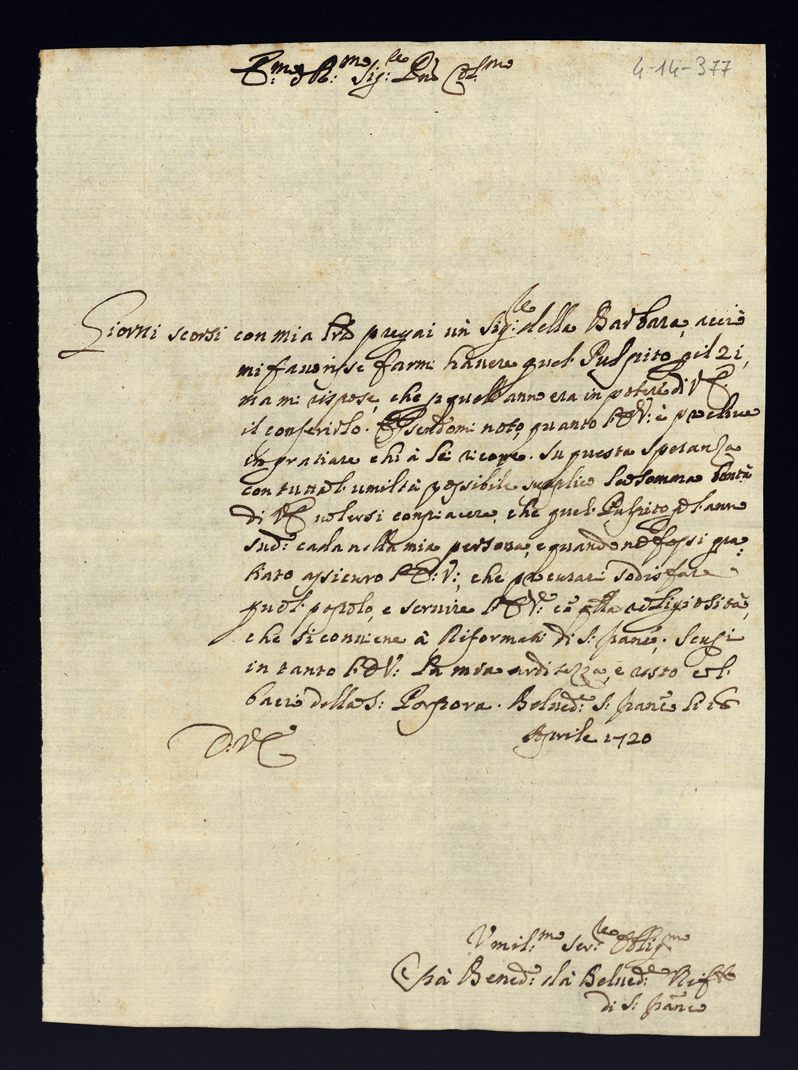 E:mo e R:mo Sig:re Pne Col:mo
4-14-377
Giorni scorsi con mia pregai un Sig:re della Barbara, acciò
mi favorisse farmi havere quel Pulpito p il 21,
ma mi rispose, che p quell'anno era in potere di V.E.
il conferirlo. Essendomi noto, quanto l'E:V: è proclive
ingratiare chi à Lei ricorre. Su questa speranza
con tutta l'umiltà possibile supplico la somma bontà
di V.E. volersi compiacere, che quel Pulpito p l'anno
sud:o cada nella mia persona, e quando ne fossi gra-
tiato assicuro l'E:V:, che procurarò sodisfare
quel popolo, e servire l'E:V: cō qlla religiosità,
che si conviene à Riformati di S: Franc:o. Scusi
in tanto l'E:V: la mia arditezza, e resto col
bacio della S: Porpora. Belved:e S: Franc:o li 16
Aprile 1720
D:V:E
Vmil:mo Ser:re Oblig:mo
Frà Bened:o dà Belved:e Rif:to
di S: Franc:o